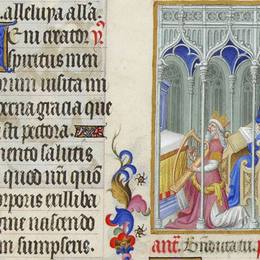 alleluya alla
eni creator
spiritus men
orum visita im
perna gracia que
sti pectora
mento salutis
quod nri quo
orporis exilliba
gine nascendo
m sumpseris.
ant. Benedicta tu.